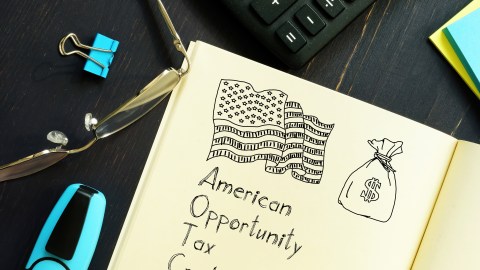 $
American
Opportunity
Tax